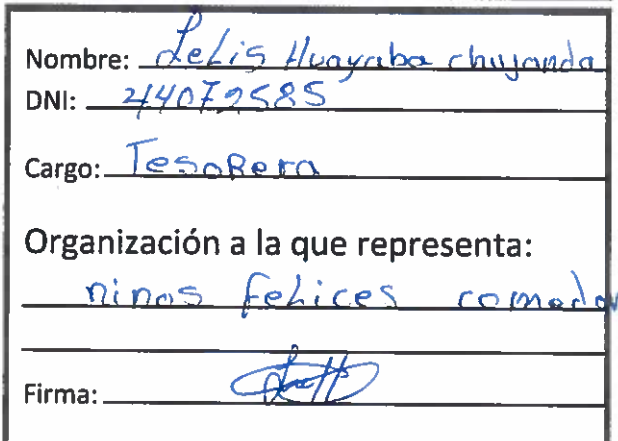 Nombre: Lelis Huayaba chujanda
DNI: 44079585
Cargo: TesoRera
Organización a la que representa:
ninos felices comedor
Firma: